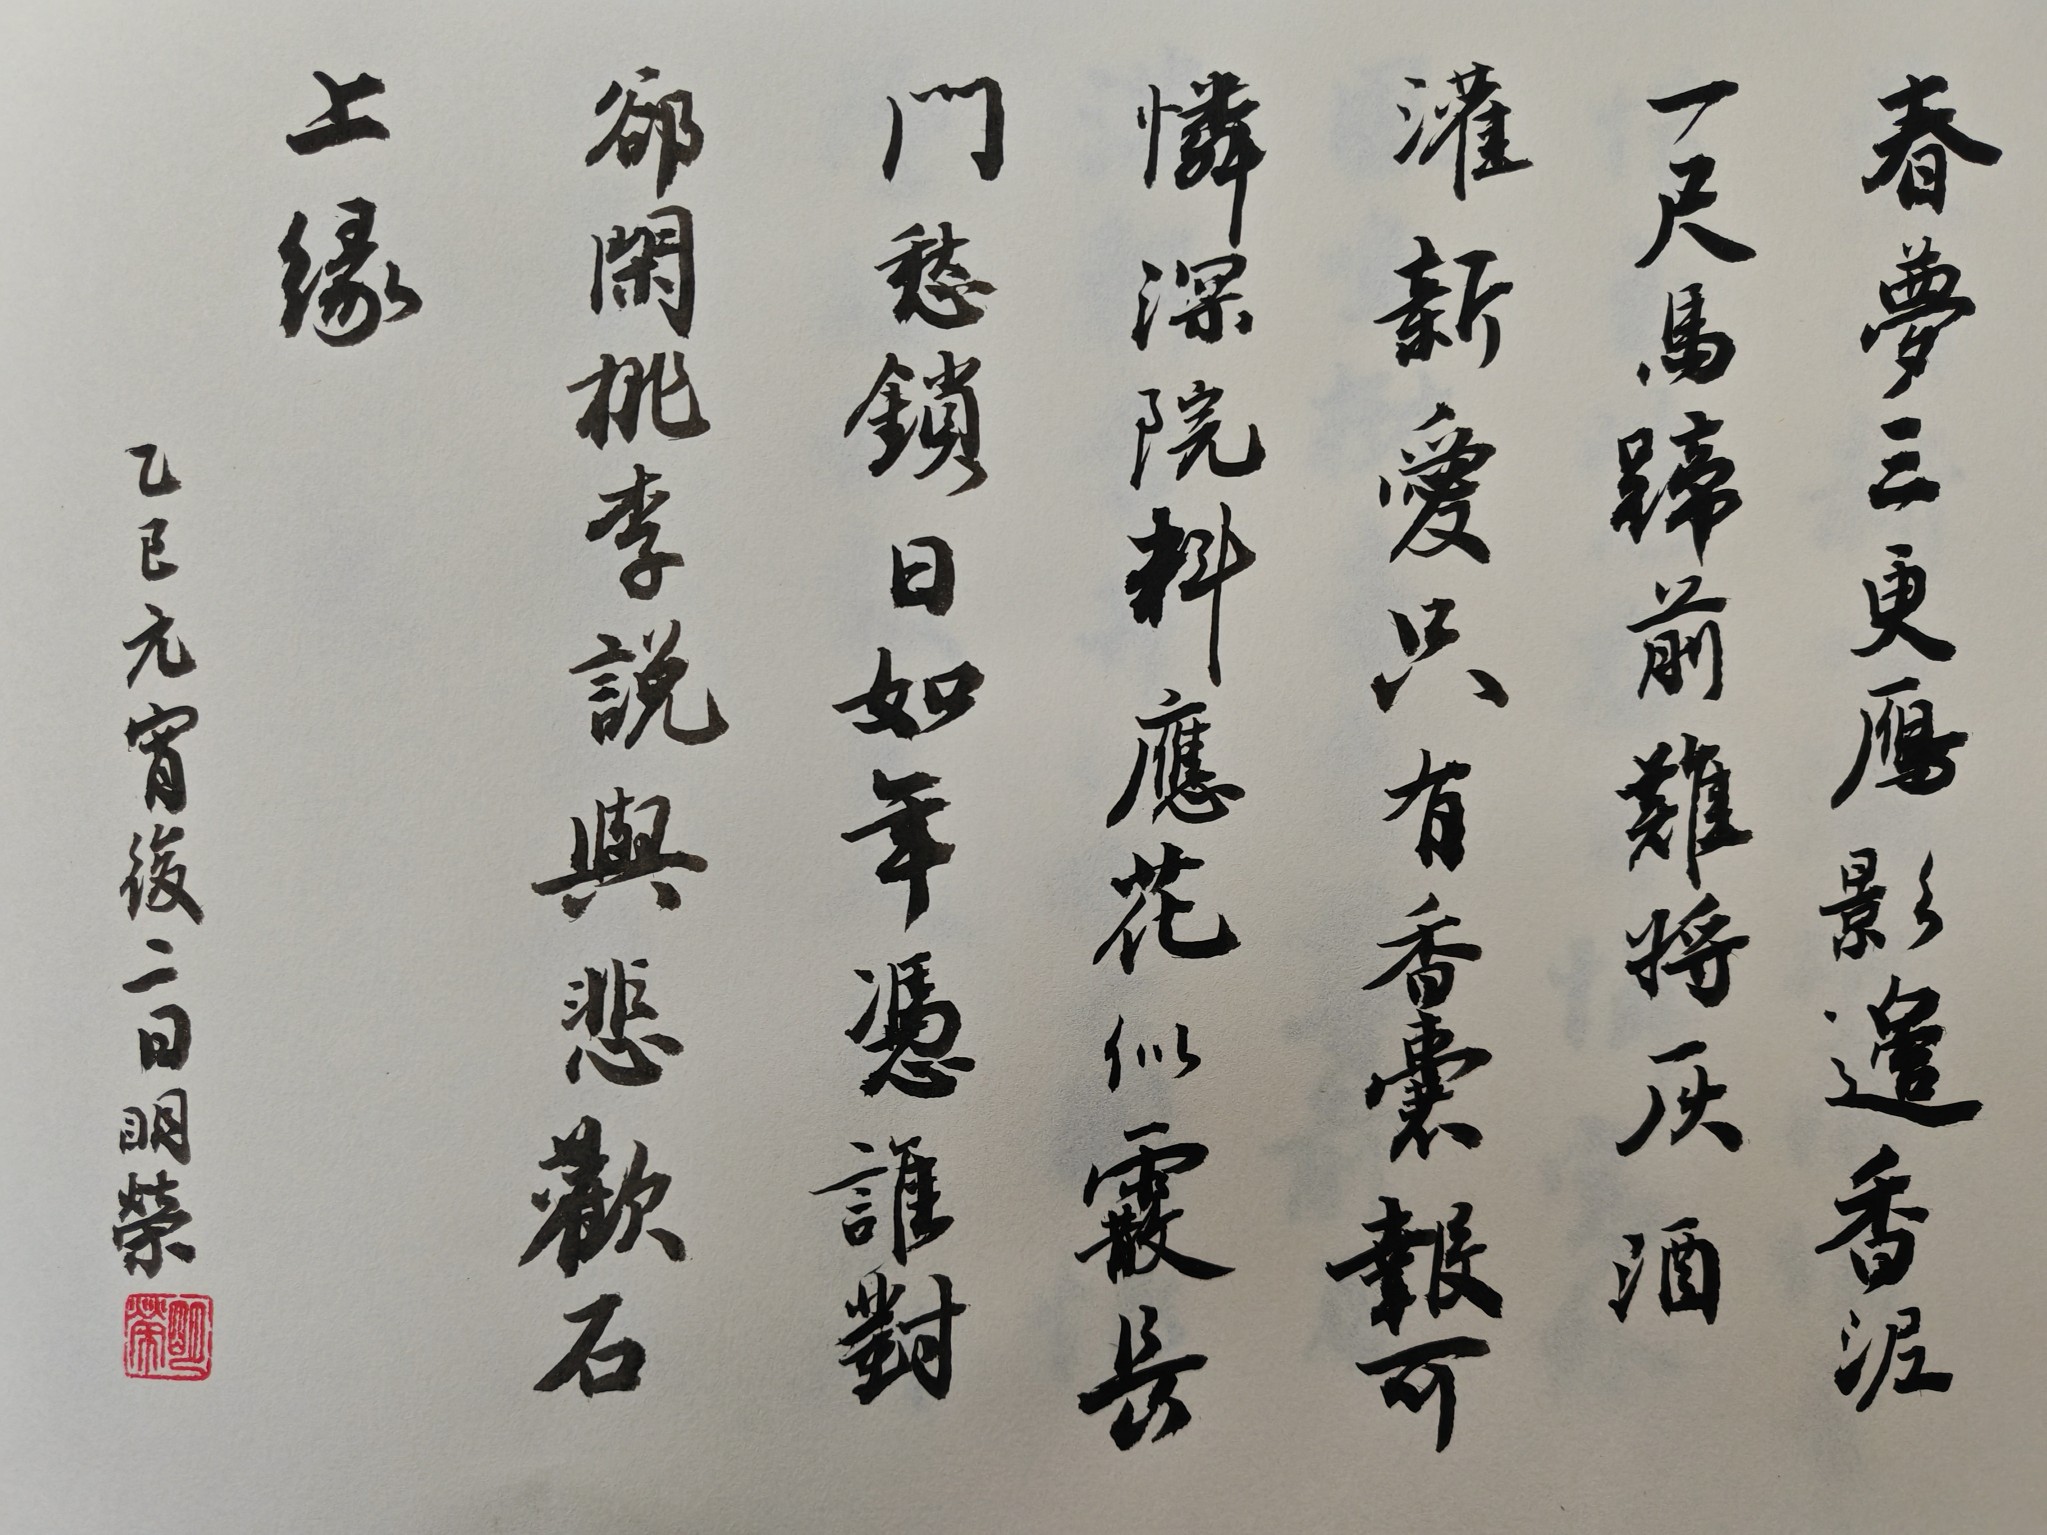 春夢三更鴈影邉香泥
一尺馬蹄前難將灰酒
灌新愛只有香囊報可
憐深院料應花似霰長
門愁鎖日如年憑誰對
郤閑桃李說與悲歡石
上緣
乙巳元宵後二日明榮
明榮